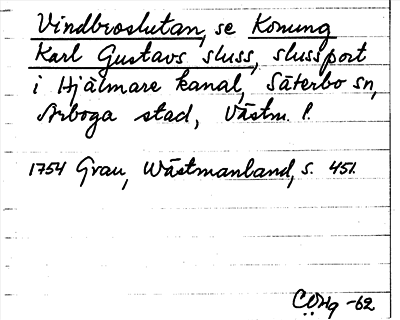 Vindbroslutan, se Konung
Karl Gustavs sluss, slussport
i Hjälmare kanal, Säterbo sn,
Arboga stad, Västm. l.
1754 Grau, Wästmanland, s. 451.
-62